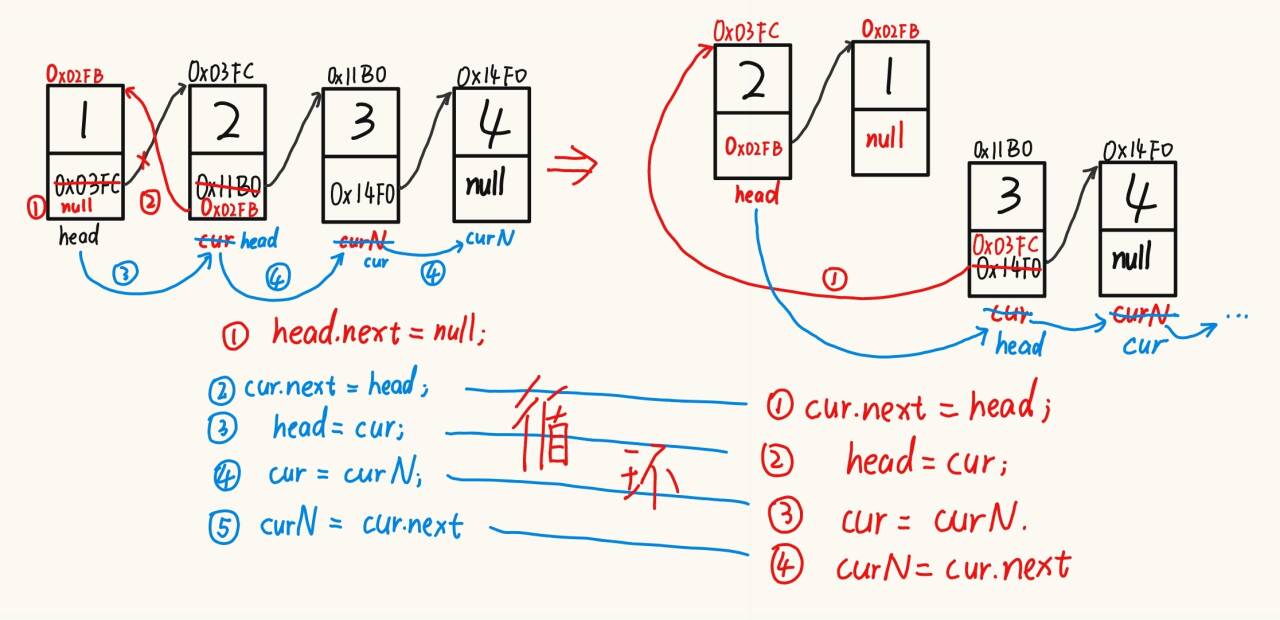 0x02FB
0x03FC
0x11B0
0x14F0
1
2
3
4
0x03FC
null
①
②
0x11B0
0x02FB
0x14F0
null
head
cur head
curN
cur
curN
③
④
④
0x03FC
0x02FB
2
1
0x02FB
null
head
0x11B0
0x14F0
3
4
0x03FC
0x14F0
null
①
cur
head
curN
cur
...
① head.next = null;
② cur.next = head;
③ head = cur;
④ cur = curN;
⑤ curN = cur.next
循环
① cur.next = head;
② head = cur;
③ cur = curN.
④ curN = cur.next